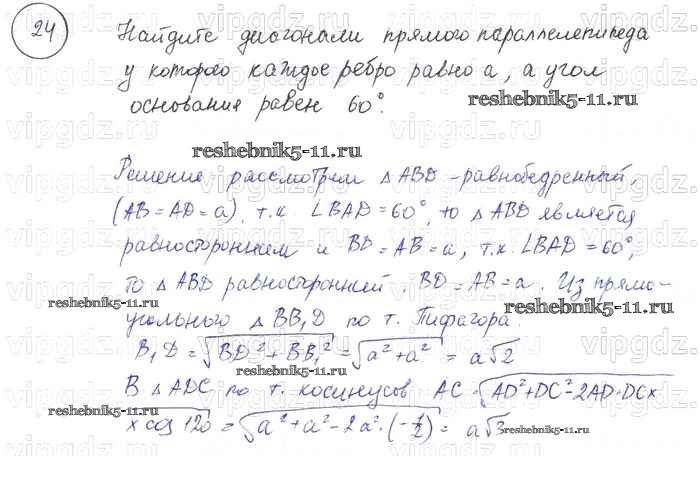 24
Найдите диагонали прямого параллелепипеда
у которого каждое ребро равно a, а угол
основания равен 60°.
reshebnik5-11.ru
reshebnik5-11.ru
Решение: рассмотрим △ABD - равнобедренный,
(AB = AD = a), т.к. ∠BAD = 60°, то △ABD является
равносторонним и BD = AB = a, т.к. ∠BAD = 60°,
то △ABD равносторонний. BD = AB = a. Из прямо-
reshebnik5-11.ru
reshebnik5-11.ru
угольного △BB₁D по т. Пифагора:
B₁D = √(BD² + BB₁²) = √(a² + a²) = a√2
reshebnik5-11.ru
В △ADC по т. косинусов AC = √(AD² + DC² - 2AD·DC x
x cos 120 = √(a² + a² - 2a²·(-1/2)) = a√3
reshebnik5-11.ru
vipgdz.ru